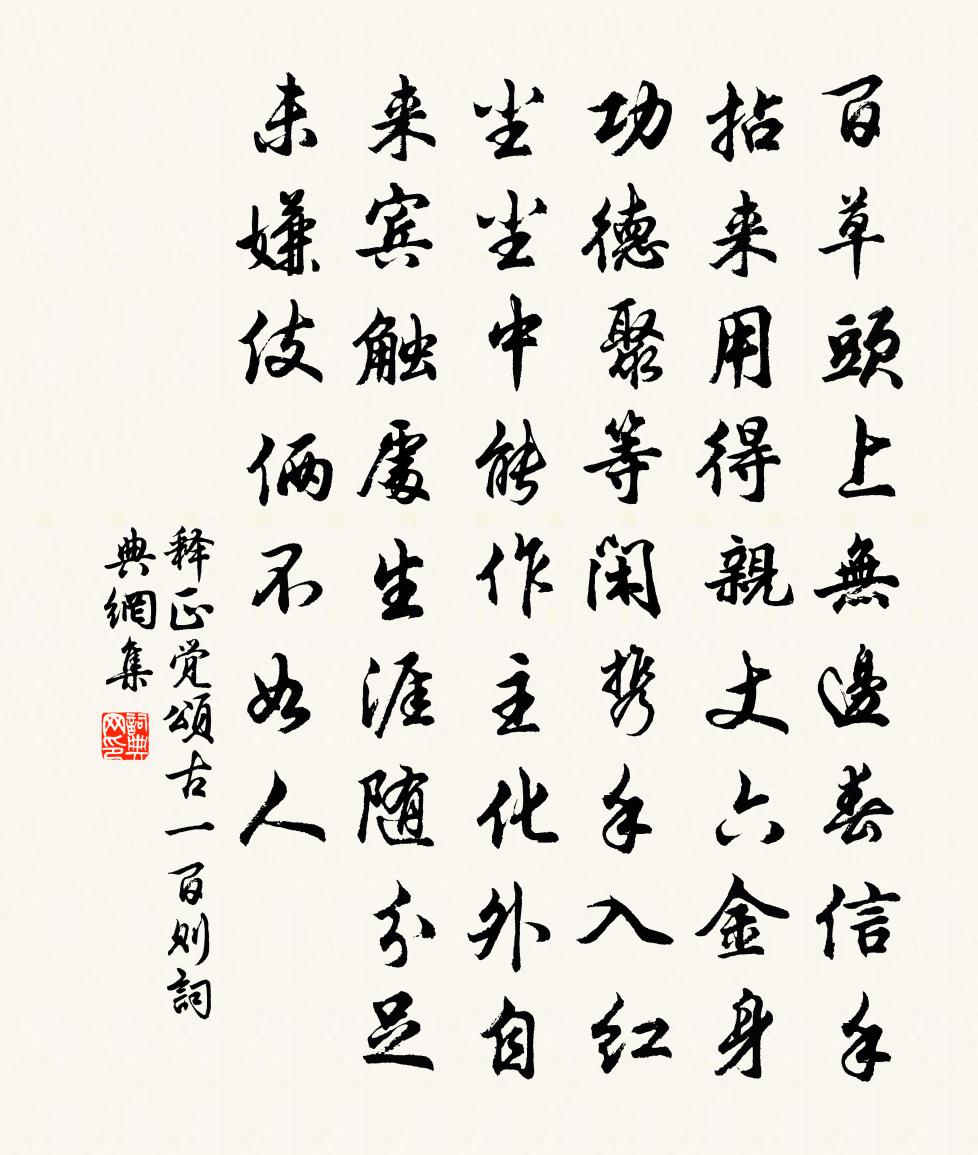 百草頭上無邊春信手
拈来用得親丈六金身
功德聚等閑携手入紅
尘尘中能作主化外自
来宾触處生涯随分足
未嫌伎俩不如人
释正觉頌古一百则詞
典網集
詞典网印